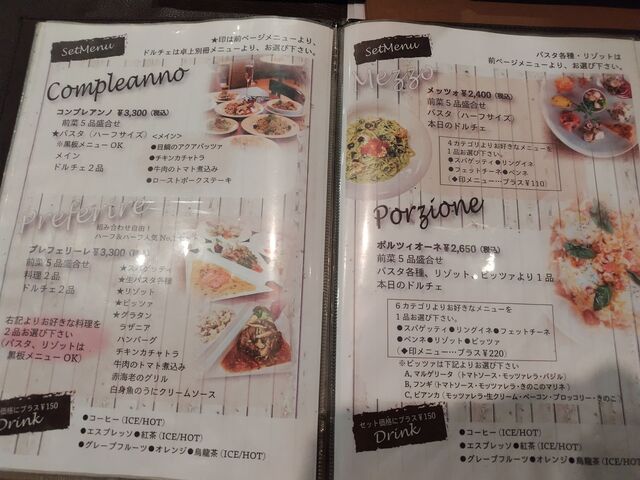 SetMenu
★印は前ページメニューより、
ドルチェは卓上別冊メニューより、お選び下さい。
Compleanno
コンプレアンノ ¥3,300 (税込)
前菜5品盛合せ
★パスタ (ハーフサイズ)
※黒板メニュー OK
メイン
ドルチェ2品
<メイン>
●目鯛のアクアパッツァ
●チキンカチャトラ
●牛肉のトマト煮込み
●ローストポークステーキ
Preferire
組み合わせ自由!
ハーフ&ハーフ人気 No.1
プレフェリーレ ¥3,300 (税込)
前菜5品盛合せ
料理2品
ドルチェ2品
右記よりお好きな料理を
2品お選び下さい
(パスタ、リゾットは
黒板メニュー OK)
★スパゲッティ
★生パスタ各種
★リゾット
★ピッツァ
★グラタン
ラザニア
ハンバーグ
チキンカチャトラ
牛肉のトマト煮込み
赤海老のグリル
白身魚のうにクリームソース
価格にプラス ¥150
Drink
●コーヒー (ICE/HOT)
●エスプレッソ ●紅茶 (ICE/HOT)
●グレープフルーツ ●オレンジ ●烏龍茶 (ICE/HOT)
SetMenu
パスタ各種・リゾットは
前ページメニューより、お選び下さい。
Mezzo
メッツォ ¥2,400 (税込)
前菜5品盛合せ
パスタ (ハーフサイズ)
本日のドルチェ
4カテゴリよりお好きなメニューを
1品お選び下さい。
●スパゲッティ ●リングイネ
●フェットチーネ ●ペンネ
(◆印メニュー…プラス ¥110)
Porzione
ポルツィオーネ ¥2,650 (税込)
前菜5品盛合せ
パスタ各種、リゾット、ピッツァより1品
本日のドルチェ
6カテゴリよりお好きなメニューを
1品お選び下さい。
●スパゲッティ ●リングイネ ●フェットチーネ
●ペンネ ●リゾット ●ピッツァ
(◆印メニュー…プラス ¥220)
※ピッツァは下記よりお選び下さい
A, マルゲリータ (トマトソース・モッツァレラ・バジル)
B, フンギ (トマトソース・モッツァレラ・きのこのマリネ)
C, ビアンカ (モッツァレラ・生クリーム・ベーコン・ブロッコリー・きのこ)
セット価格にプラス ¥150
Drink
●コーヒー (ICE/HOT)
●エスプレッソ ●紅茶 (ICE/HOT)
●グレープフルーツ ●オレンジ ●烏龍茶 (ICE/HOT)